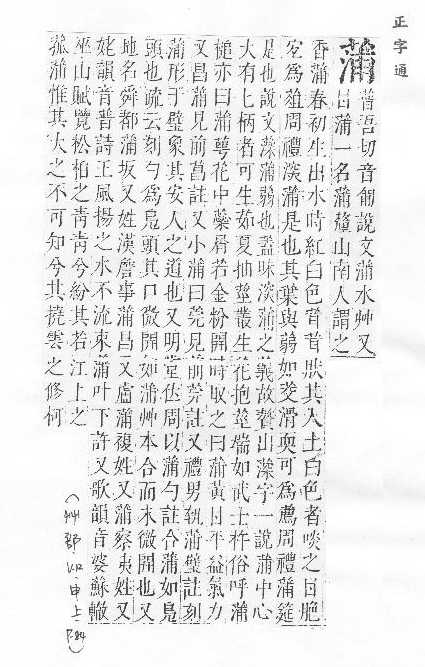 正字通
蒲
普吾切音匍說文蒲水艸又
曰蒲一名蒲蘠山南人謂之
香蒲春初生出水時紅白色茸茸狀其入土白色者啖之甘脆
為菹周禮深蒲是也其葉與蒻如滑耎可為薦周禮蒲筵
是也說文深蒲蒻也蓋味深蒲之義故贅出深字一說蒲中心
大有匕柄者可生茹夏抽莖叢生花抱莖端如武士杵俗呼蒲
槌亦曰蒲萼花中蘂屑若金粉開時取之曰蒲黃甘平益氣力
又昌蒲見前菖註又小蒲曰莞見前莞註又禮男執蒲璧註刻
蒲形于璧象其安人之道也又明堂位周以蒲勺註合蒲如鳧
頭也疏云刻勺為鳧頭其口微開如蒲艸本合而末微開也又
地名舜都蒲坂又姓漢詹事蒲昌又盧蒲複姓又蒲察夷姓又
姥韻音普詩王風揚之水不流束蒲叶下許又歌韻音婆蘇轍
巫山賦覽松柏之青青兮紛其若江上之
菰蒲惟其大之不可知兮其撓雲之修柯
(艸部 申上 P.84)